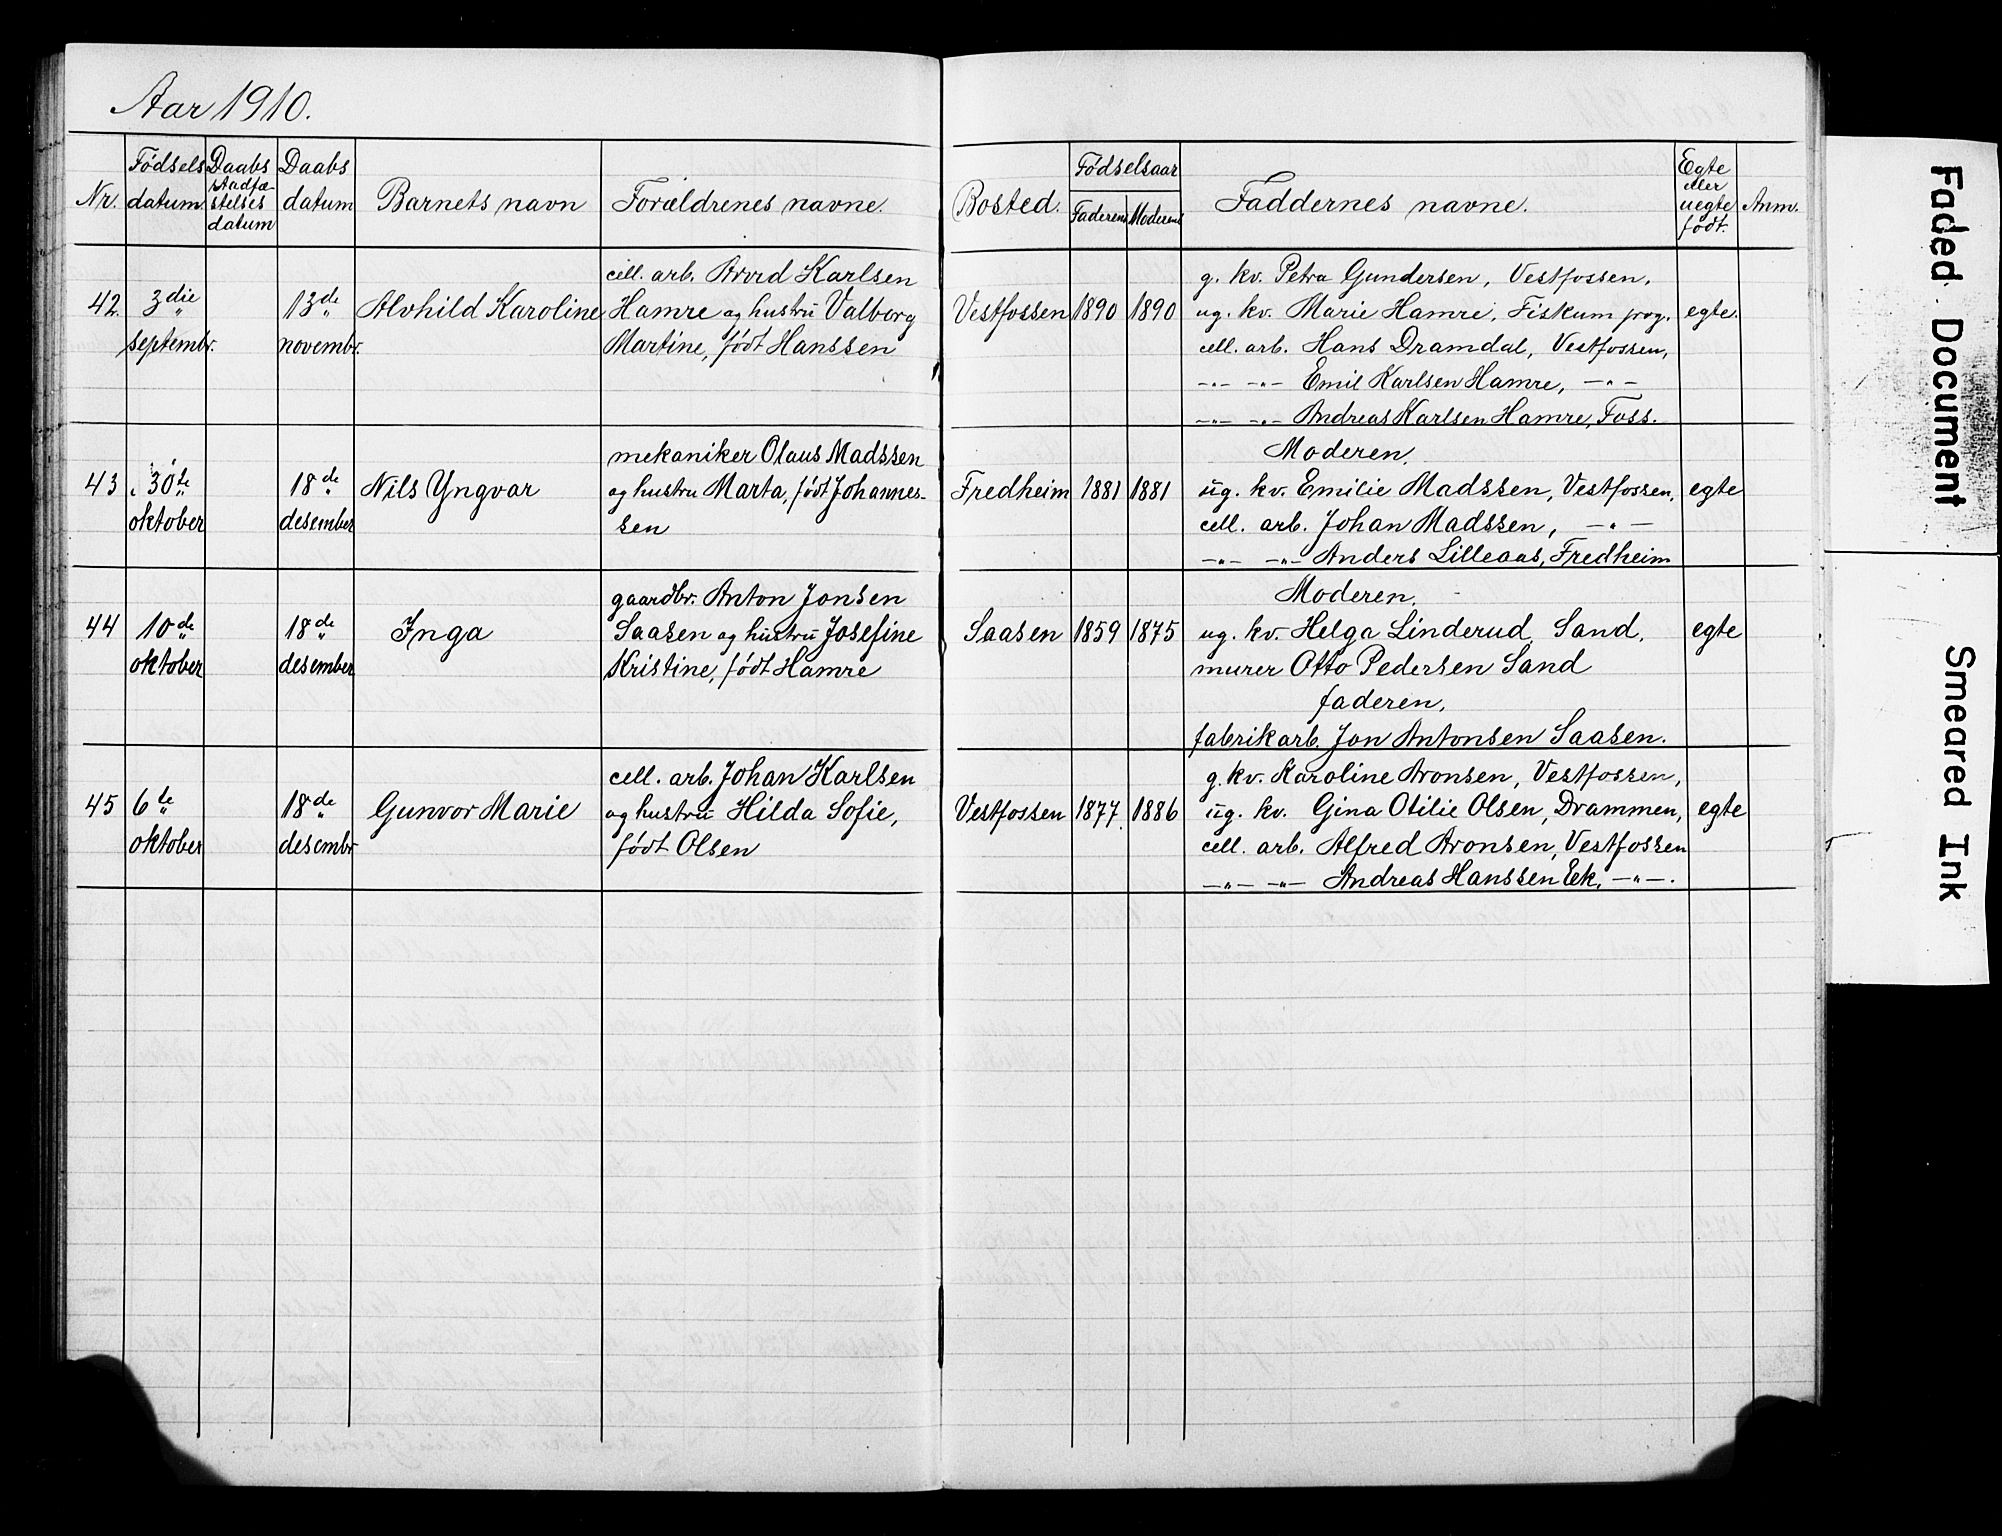 Aar 1910.
Nr. Fødsels datum Daabs stadfæstelses datum Daabs datum Barnets navn Forældrenes navne. Bosted. Fødselsaar Faderens Moderens Faddernes navne. Egte eller uegte født. Anm.
cell. arb. Arvid Karlsen
42. 3die 13de Alvhild Karoline Hamre og hustru Valborg
septembr. novembr. Martine, født Hanssen
g. kv. Petra Gundersen, Vestfossen.
Vestfossen 1890 1890 ug. kv. Marie Hamre, Fiskum prg. egte.
cell. arb. Hans Dramdal, Vestfossen,
-"- -"- Emil Karlsen Hamre, -"-
-"- -"- Andreas Karlsen Hamre, Foss.
mekaniker Olaus Madssen
43 30te 18de Nils Yngvar og hustru Marta, født Johannes-
oktober desember sen
Moderen.
Fredheim 1881 1881 ug. kv. Emilie Madssen, Vestfossen, egte
cell. arb. Johan Madssen, -"-
-"- -"- Anders Lilleaas, Fredheim
gaardbr. Anton Jonsen
44 10de 18de Inga Saasen og hustru Josefine
oktober desember Kristine, født Hamre
Moderen.
Saasen 1859 1875 ug. kv. Helga Linderud, Sand. egte
murer Otto Pedersen Sand
faderen,
fabrikarb. Jon Antonsen Saasen.
cell. arb. Johan Karlsen
45 6te 18de Gunvor Marie og hustru Hilda Sofie,
oktober desembr født Olsen
g. kv. Karoline Aronsen, Vestfossen,
Vestfossen 1877. 1886 ug. kv. Gina Otilie Olsen, Drammen, egte
cell. arb. Alfred Aronsen, Vestfossen
-"- -"- Andreas Hanssen Eek, -"-.
Faded Document
Smeared Ink